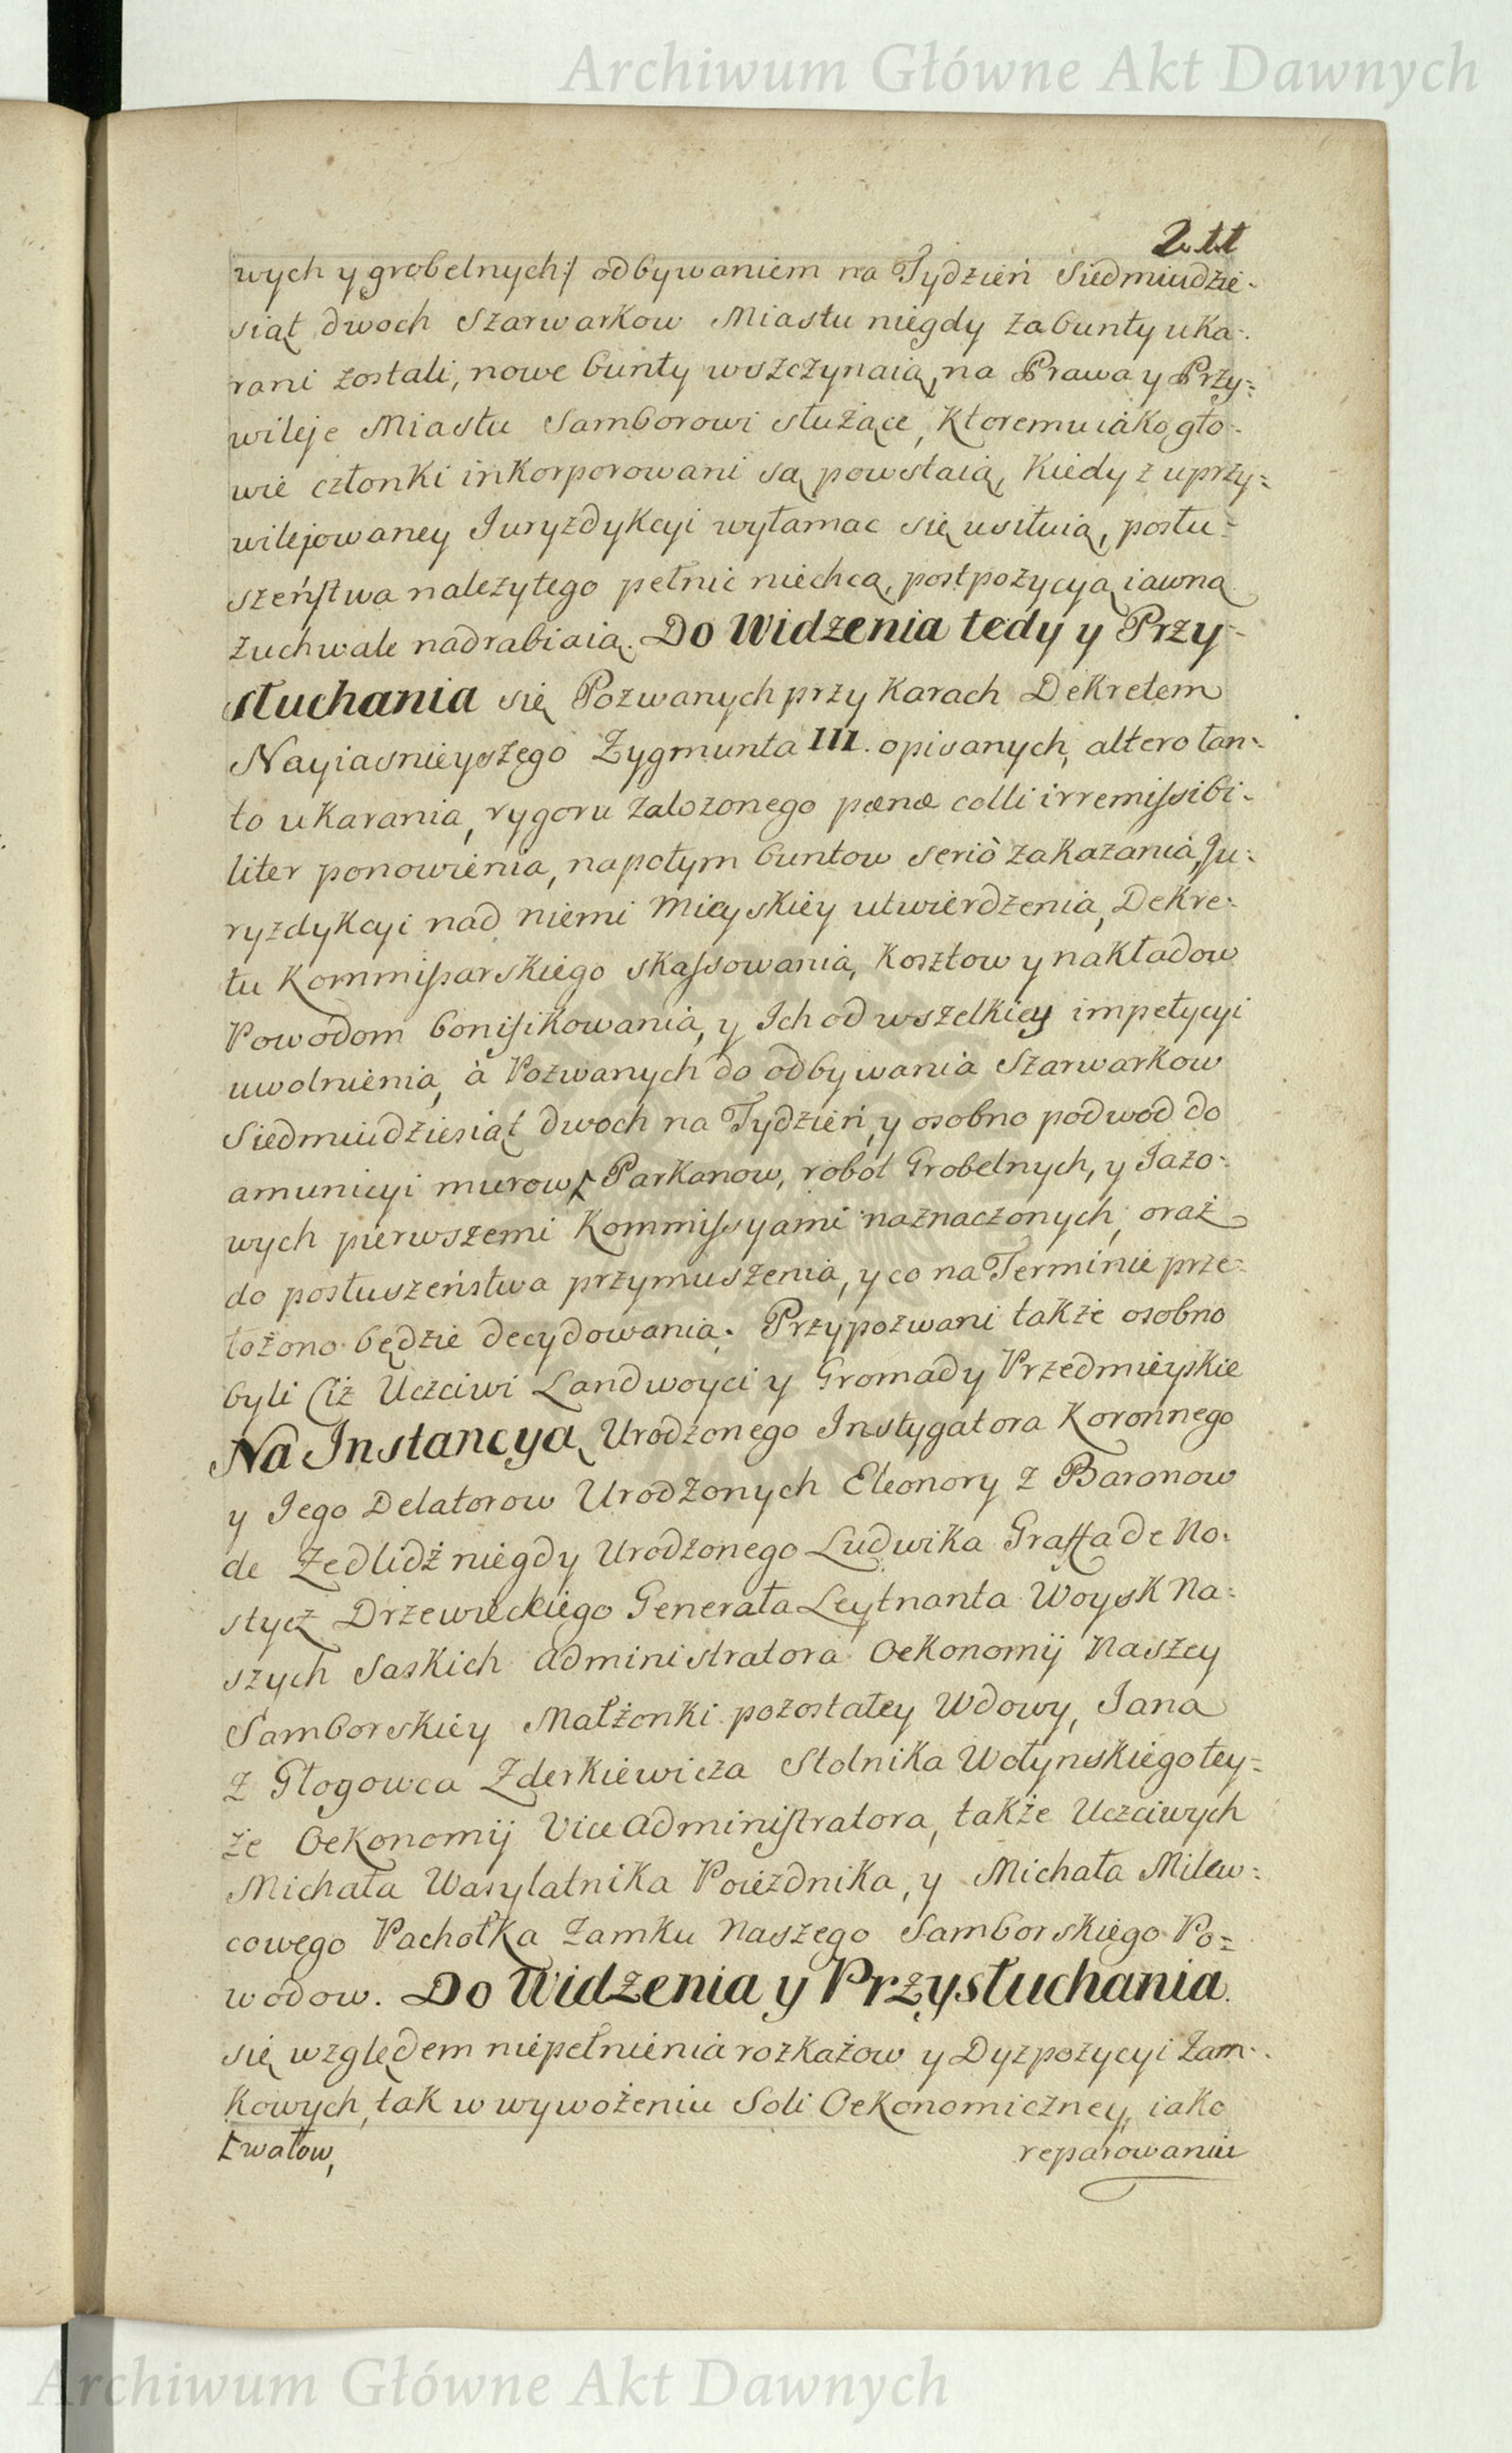 Archiwum Główne Akt Dawnych
211
wych y grobelnych/ odbywaniem na Tydzień Siedmiudzie-
siąt dwoch Szarwarkow Miastu niegdy za bunty uka-
rani zostali, nowe bunty wszczynaią, na Prawa y Przy-
wileje Miastu Samborowi służące, Ktoremu iáko gło-
wie członki inkorporowani są powstaią, Kiedy z uprzy-
wilejowaney Juryzdykcyi wyłamac się usiłuią, posłu-
szeństwa należytego pełnic niechcą, postpozycyą iawną
zuchwale nadrabiaią. Do Widzenia tedy y Przy-
słuchania się Pozwanych przy Karach Dekretem
Nayiasnieyszego Zygmunta III. opisanych, altero tan-
to ukarania, rygoru założonego pænæ colli irremissibi-
liter ponowienia, napotym buntow seriò zakazania, Ju-
ryzdykcyi nad niemi Mieyskiey utwierdzenia, Dekre-
tu Kommissarskiego skassowania, Kosztow y nakładow
Powodom bonifikowania, y Ich od wszelkiey impetycyi
uwolnienia, à Pozwanych do odbywania Szarwarkow
Siedmiudziesiąt dwoch na Tydzień, y osobno podwod do
amunicyi murow, Parkanow, robot Grobelnych, y Jazo-
wych pierwszemi Kommissyami naznaczonych, oraz
do posłuszeństwa przymuszenia, y co na Terminie prze-
łożono będzie decydowania. Przypozwani także osobno
byli Ciż Uczciwi Landwoyci y Gromady Przedmieyskie
Na Instancyą Urodzonego Instygatora Koronnego
y Jego Delatorow Urodzonych Eleonory z Baronow
de Zedlidz niegdy Urodzonego Ludwika Graffa de No-
stycz Drzewieckiego Generała Leytnanta Woysk Na-
szych Saskich administratora Oekonomij Naszey
Samborskiey Małżonki pozostałey Wdowy, Jana
z Głogowca Zderkiewicza Stolnika Wołynskiego tey-
że Oekonomij Vice administratora, także Uczciwych
Michała Wasylatnika Poiezdnika, y Michała Milew-
cowego Pachołka Zamku Naszego Samborskiego Po-
wodow. Do Widzenia y Przysłuchania
się względem niepełnienia rozkazow y Dyzpozycyi Zam-
kowych, tak w wywożeniu Soli Oekonomiczney, iako
wałow,
reparowaniu
Archiwum Główne Akt Dawnych